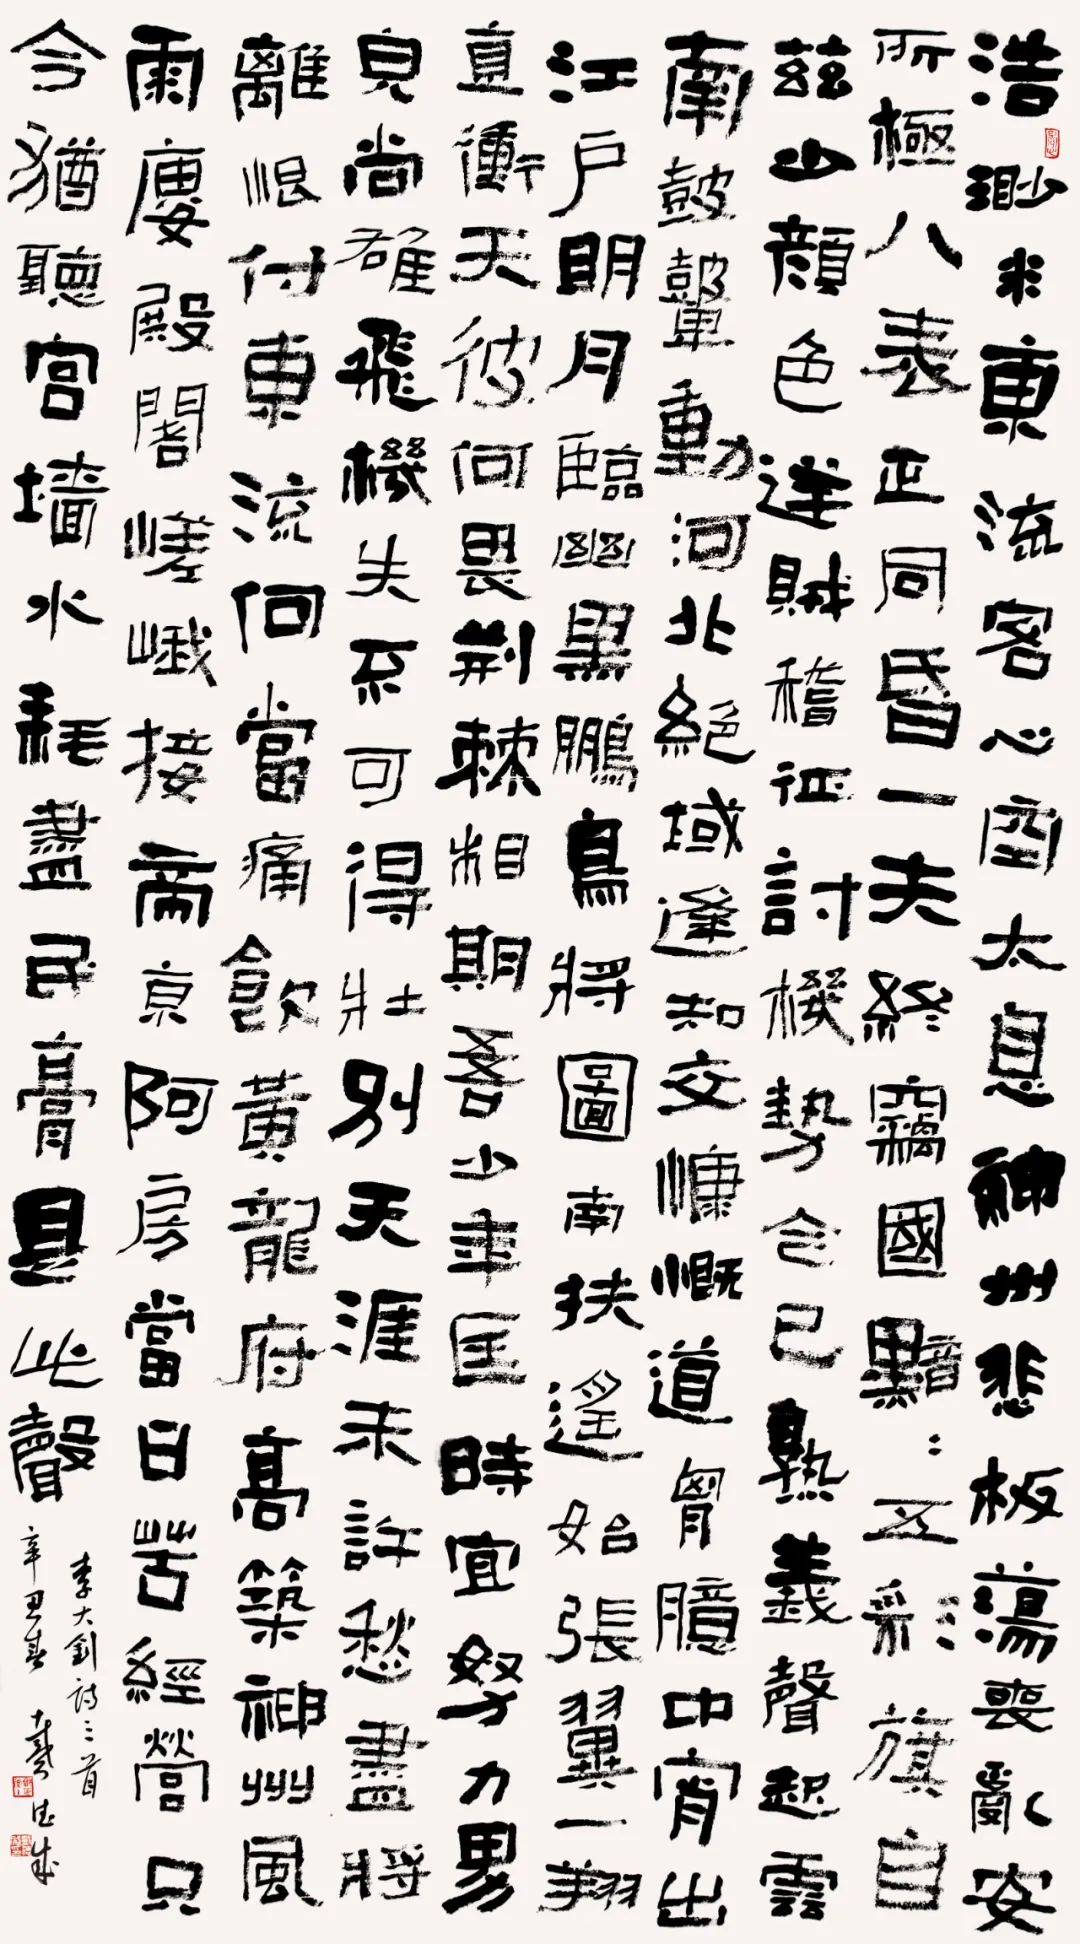 浩渺求東流客心空太息神州悲板蕩喪亂安
所極八表正同昏一夫終竊國黯:五彩旗自
茲山顏色逆賊稽征討機勢今已熟義聲起雲
南鼓鼙動河北絕域逢知交慷慨道胷臆中宵出
江戶明月臨幽黑鵬鳥將圖南扶遙始張翼一翔
直衝天彼何畏荆棘相期吾少年匡時宜努力男
皃尚雄飛機失不可得壯別天涯未許愁盡將
離恨付東流何當痛飲黃龍府高築神州風
雨廔殿閣嵯峨接帝京阿房當日苦經營只
今猶聽宮墻水耗盡民膏是此聲
李大釗詩三首
辛丑春